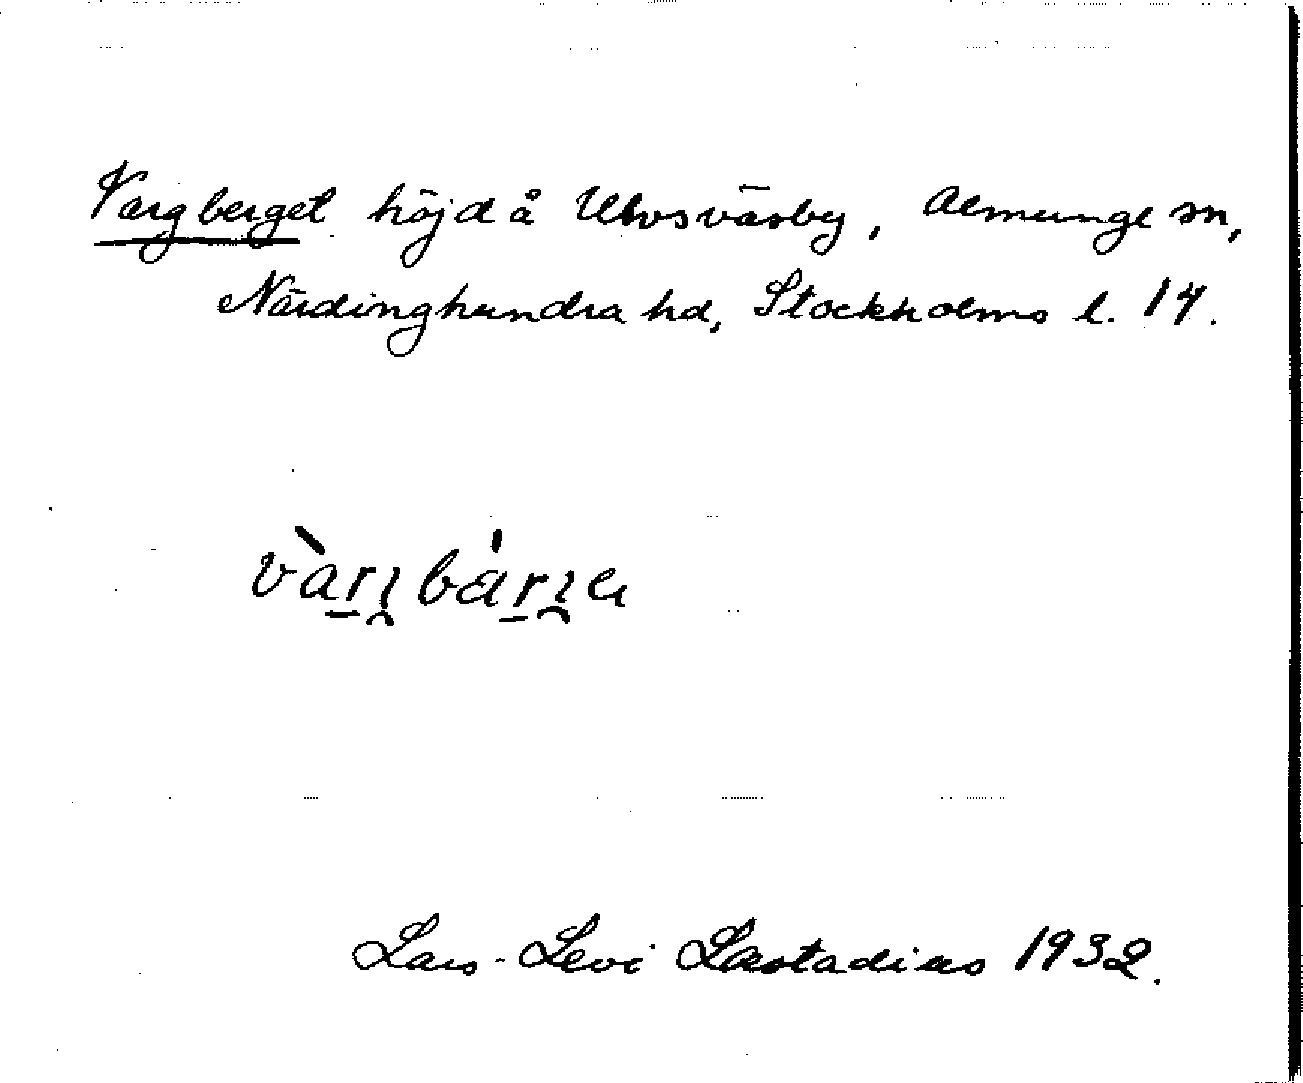 Vargberget höjd å Ulvsväsby, Almunge sn,
Närdinghundra hd, Stockholms l. 14.
Lars-Levi Læstadius 1932.